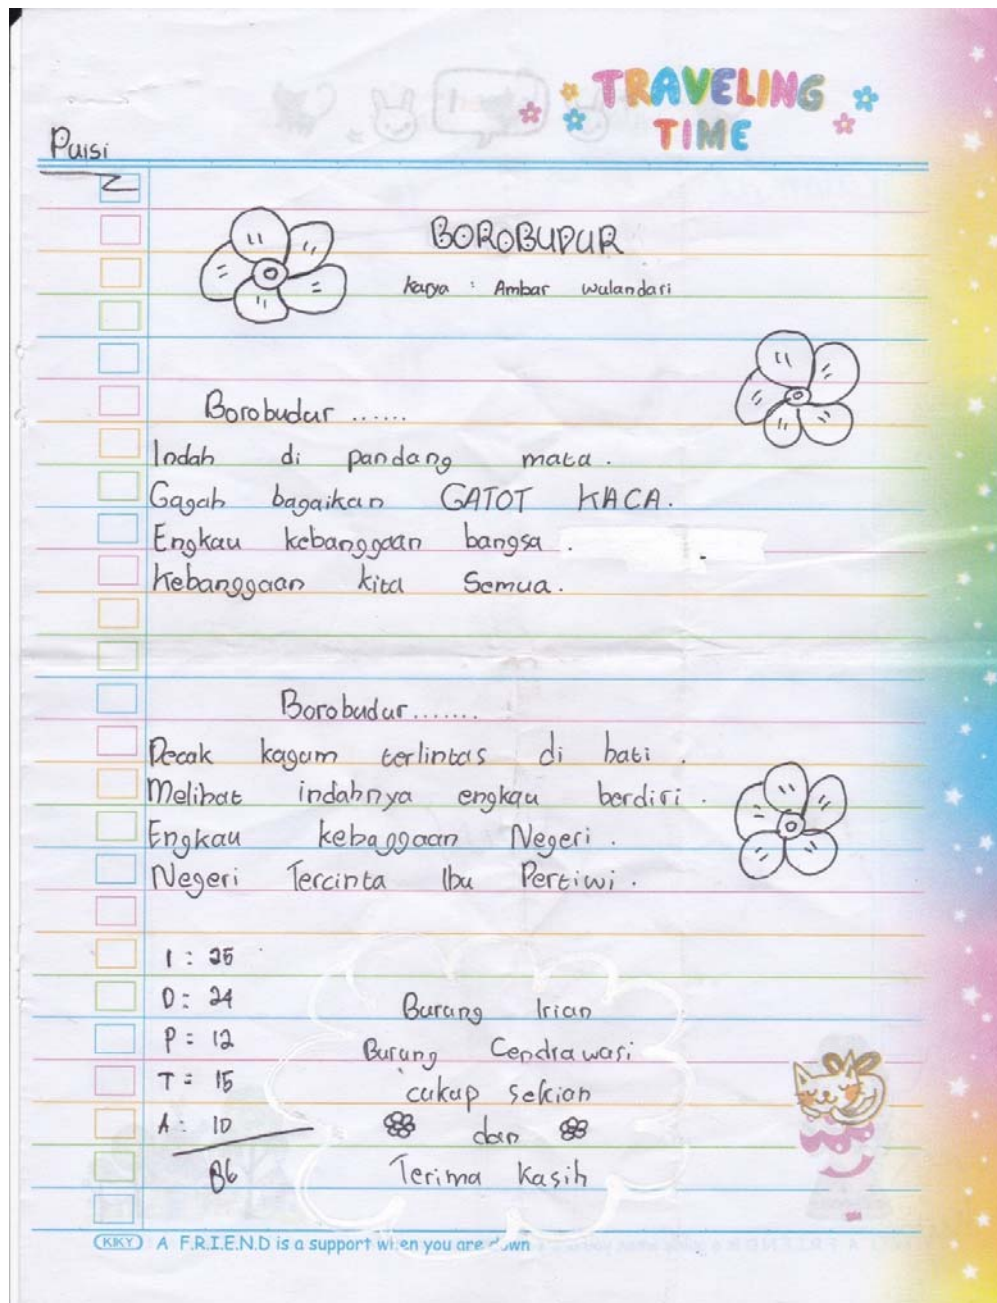 TRAVELING
TIME
Puisi
BOROBUDUR
Karya : Ambar wulandari
Borobudur ......
Indah di pandang mata .
Gagah bagaikan GATOT KACA.
Engkau kebanggaan bangsa .
Kebanggaan kita Semua .
Borobudur.......
Decak kagum terlintas di hati .
Melihat indahnya engkau berdiri .
Engkau kebaggaan Negeri .
Negeri Tercinta Ibu Pertiwi .
I : 25
D : 24
P = 12
T = 15
A : 10
86
Burung Irian
Burung Cendrawasi
cukup sekian
dan
Terima Kasih
KIKY A F.R.I.E.N.D is a support when you are down